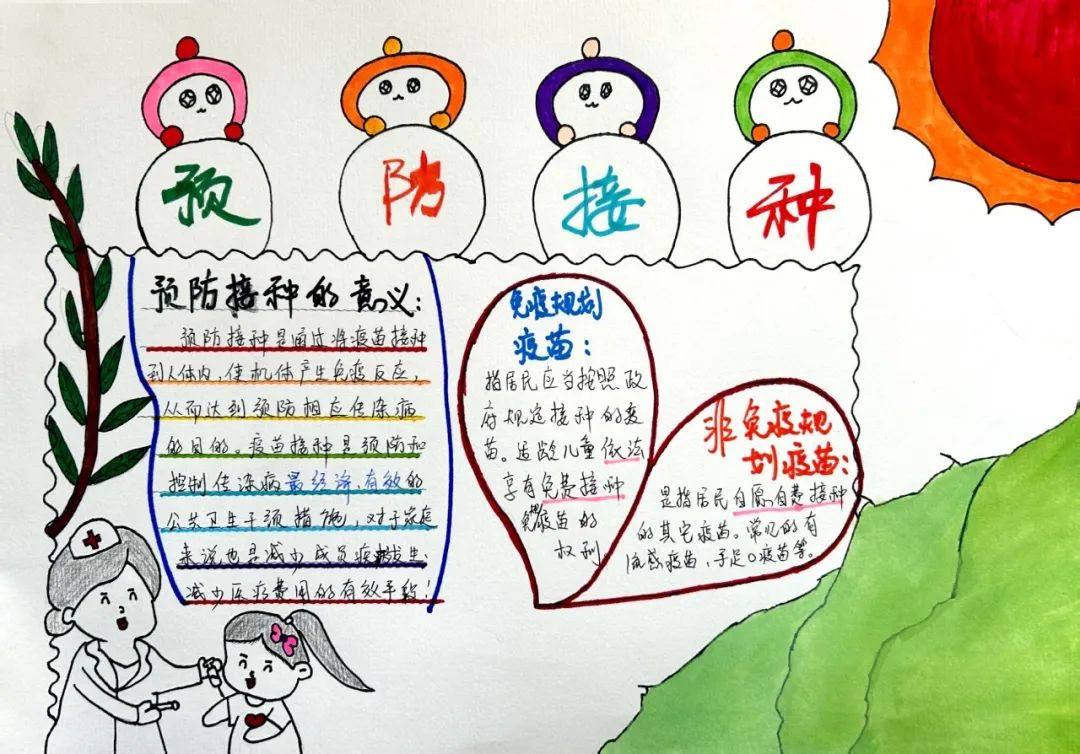 预防接种
预防接种的意义：
预防接种是通过将疫苗接种
到人体内，使机体产生免疫反应，
从而达到预防相应传染病
的目的。疫苗接种是预防和
控制传染病最经济、有效的
公共卫生干预措施，对于家庭
来说也是减少成员疾病发生、
减少医疗费用的有效手段！
免疫规划
疫苗：
指居民应当按照政
府规定接种的疫
苗。适龄儿童依法
享有免费接种
疫苗的
权利
非免疫规
划疫苗：
是指居民自愿、自费接种
的其它疫苗。常见的有
流感疫苗，手足口疫苗等。